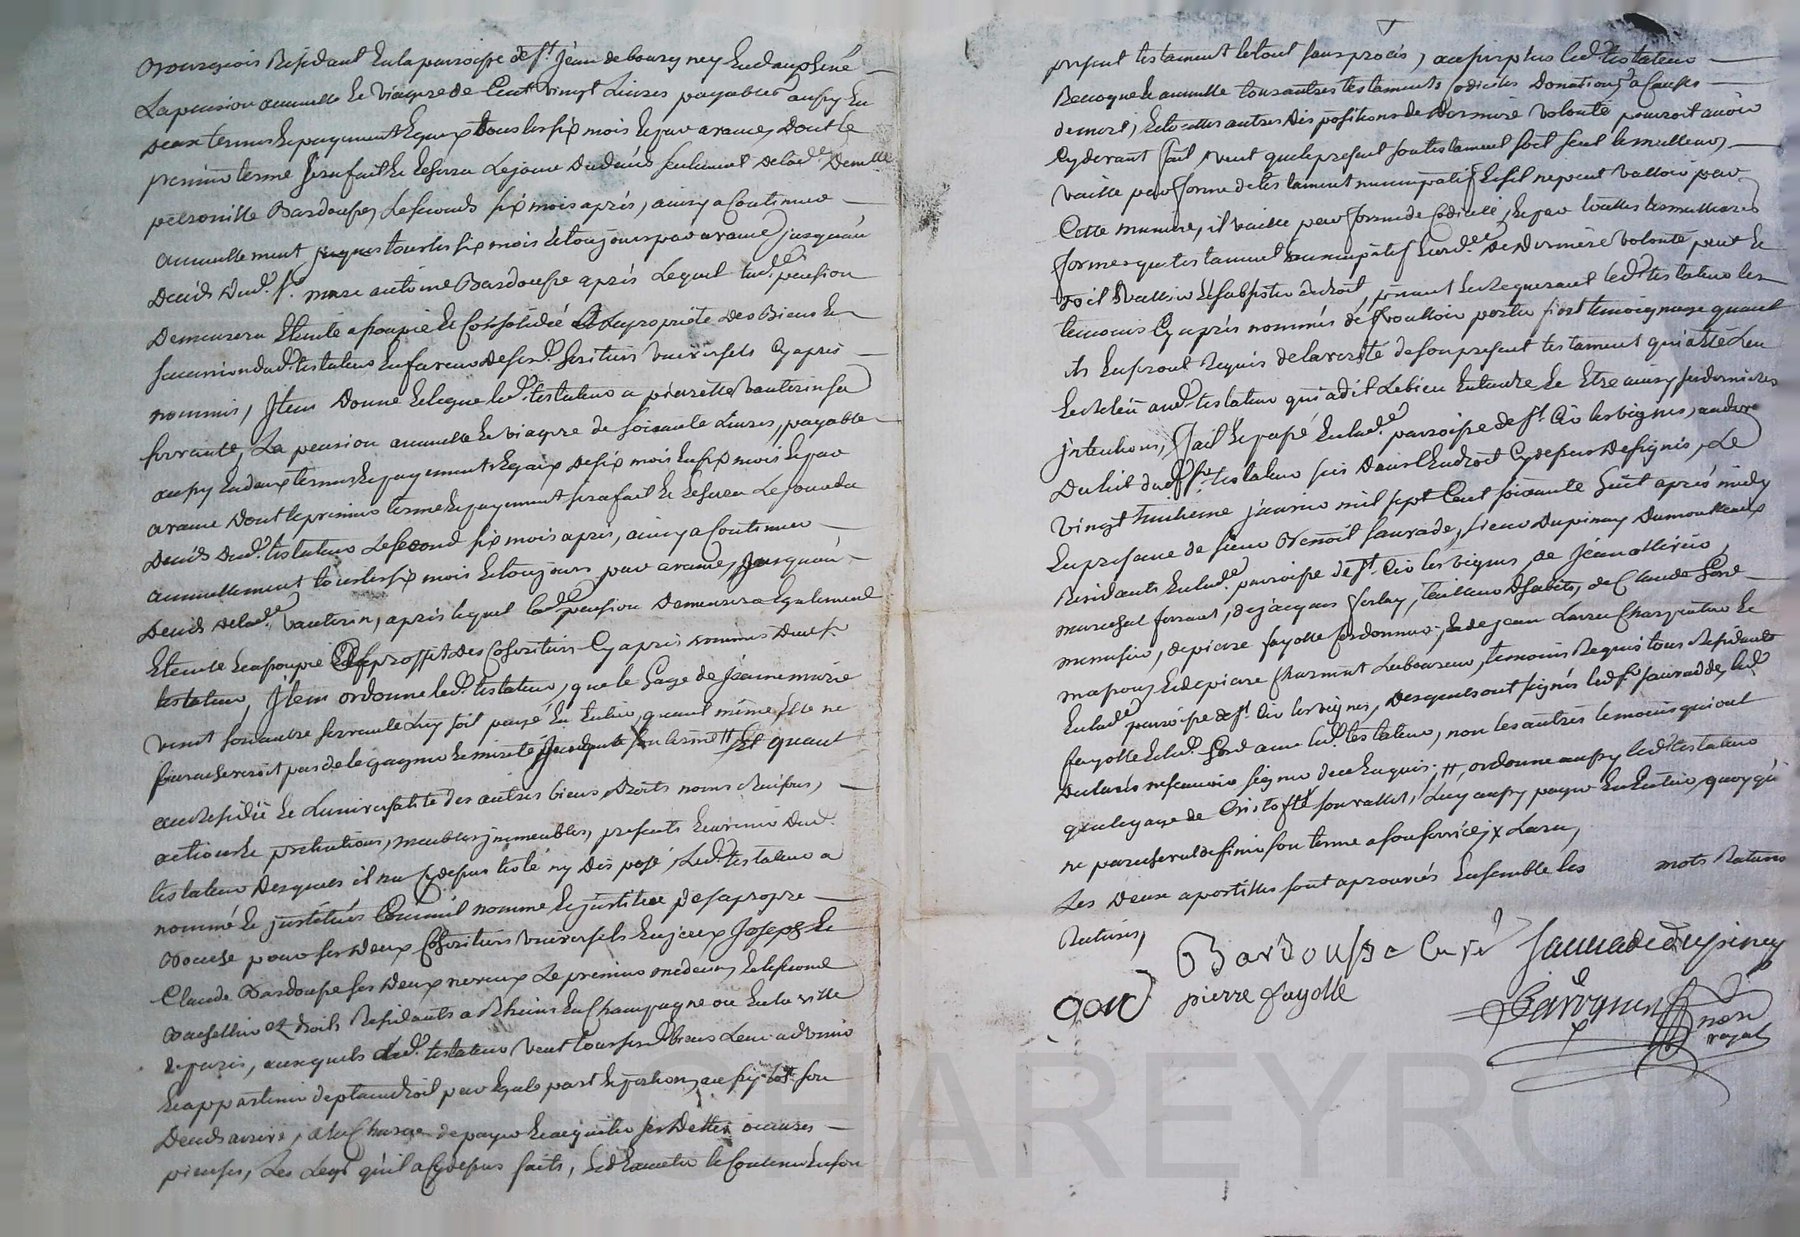 Bourgeois Residant en la paroisse de St. Jean de bournay en dauphiné
La pension annuelle et viagere de Cent vingt Livres payables aussy en
deux termes et payements Egaux tous les six mois et par avance, Dont le
premier terme sera fait et Echerra Le jour du décés seulement de lad.e Demlle
petronille Bardousse, Le second six mois aprés, ainsy a Continuer
annuellement tous les six mois et toujours par avance jusqu'au
Decés dud. Sr. marc antoine Bardousse aprés Lequel lad.e pension
Demeurera Eteinte assoupie et Consolidée a la proprieté des Biens et
succession dud. testateur en faveur de ses d. heritiers universels Cy aprés
nommés, Item Donne et legue led. testateur a pierrette vauterin sa
servante, La pension annuelle et viagere de soixante Livres, payable
aussy en deux termes et payements Egaux de six mois en six mois et par
avance dont le premier terme et payement sera fait et Echerra Le jour du
Decés dud. testateur Le second six mois aprés, ainsy a Continuer
annuellement tous les six mois et toujours par avance, Jusqu'au
Decés de lad.e vauterin, aprés lequel lad.e pension Demeurera Egalement
Eteinte et assoupie au proffit des Coheritiers Cy aprés nommés dud. Sr.
testateur, Item ordonne led. testateur, que le Gage de Jeanne marie
vinet son autre servante Luy soit payé En Entier, quand même Elle ne
paracheveroit pas de le gagner et meriter son terme # Et quant
au Residû et L'universalité des autres biens, droits noms Raisons,
actions et pretentions, meubles, immeubles, presents et avenir dud.
testateur desquels il n'a Cy depus testé ny disposé, Led. testateur a
nommé et institué Comme il nomme et institue de sa propre
Bouche pour ses deux Coheritiers universels sieurs Joseph et
Claude Bardousse ses deux neveux Le premier medecin, et le second
Bachellier ez droits Residants a Rheims en Champagne ou en la ville
de paris, auxquels led. testateur veut tous ses d. biens Leur advenir
et appartenir de plain droit par Egale part et portion, aussy tot son
Decés arrivé, a la Charge de payer et acquitter ses Dettes oeuvres
pieuses, Les Legs qu'il a Cy depus faits, et d'Executer le Contenu en son
present testament le tout sans procés, au surplus led. testateur
Revoque et annulle tous autres testaments Codiciles Donations a Causes
de mort, et toutes autres dispositions de derniere volonté pouvoit avoir
Cy devant fait, veut que le present son testament soit seul le meilleur,
vaille par forme de testament nuncupatif Et s'il ne peut valloir par
Cette maniere, il vaille par forme de Codicile, et par touttes les meilleures
formes que testament nuncupatif et ord.ce de Derniere volonté peut et
doit valloir et subsister de droit, priant et Requerant led. testateur les
temoins Cy aprés nommés de vouloir porter fidel temoignage quand
ils En seront Requis de la verité de son present testament qui a été Leu
et Releû aud. testateur qui a dit Le bien Entendre et Etre ainsy ses dernieres
intentions, Fait et passé En lad.e paroisse de St. Cir les vignes, au devant
Du lit dud. Sr. testateur sis dans l'Endroit Cy dessus designé, Le
vingt huitieme janvier mil sept Cent soixante huit aprés midy
En presence de sieur Benoit sauvade, sieur Dupinay Dumoulleaux
Residants En lad.e paroisse de St. Cir les vignes de Jean ollivier,
marechal ferrant, de jacques ferlay, tailleur d'habits, de Claude Goré
menusier, de pierre fayolle cordonnier, et de jean Lareu Charpentier et
masson, et de pierre Charmet Laboureur, temoins Requis tous Residants
En lad.e paroisse de St. Cir les vignes, desquels ont signés led. Sr. sauvade, led.
fayolle et led. Goré avec led. testateur, non les autres temoins qui ont
Declarés ne scavoir signer de ce Enquis. #, ordonne aussy led. testateur
que le gage de Cristofle son vallet, Luy aussy payer En Entier, quoy qu'il
ne paracheveroit de finir son terme a son service; x Lareu,
Les Deux apostilles sont aprouvées Ensemble les mots Raturés
Raturés,
Bardousse Curé sauvade dupiney
goré pierre fayolle
nore
royal
CHAREYRO